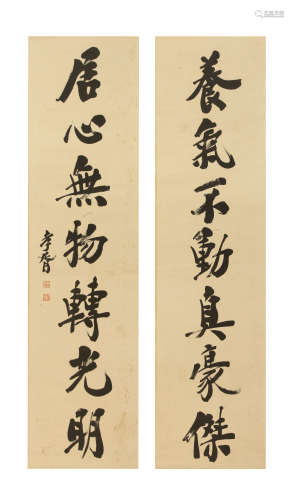 養氣不動真豪傑
居心無物轉光明
孝胥